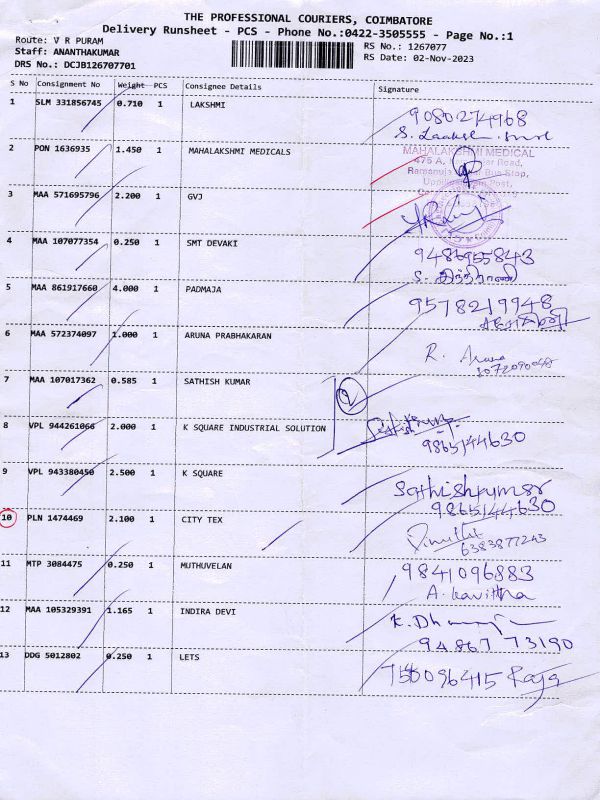 THE PROFESSIONAL COURIERS, COIMBATORE
Delivery Runsheet - PCS - Phone No.:0422-3505555 - Page No.:1
Route: V R PURAM
Staff: ANANTHAKUMAR
DRS No.: DCJB126707701
RS No.: 1267077
RS Date: 02-Nov-2023
S No Consignment No Weight PCS Consignee Details Signature
1 SLM 331856745 0.710 1 LAKSHMI 9080274968
S.
2 PON 1636935 1.450 1 MAHALAKSHMI MEDICALS
MAHALAKSHMI MEDICAL
475 A, Road,
Bus Stop,
Post,
3 MAA 571695796 2.200 1 GVJ
4 MAA 107077354 0.250 1 SMT DEVAKI 9486955843
S. இந்திராணி
5 MAA 861917660 4.000 1 PADMAJA 9578219948
6 MAA 572374097 1.000 1 ARUNA PRABHAKARAN R. Aruna
7 MAA 107017362 0.585 1 SATHISH KUMAR 2
8 VPL 944261066 2.000 1 K SQUARE INDUSTRIAL SOLUTION
9865144630
9 VPL 943380450 2.500 1 K SQUARE Sathishkumar
9865144630
10 PLN 1474469 2.100 1 CITY TEX
6383877243
11 MTP 3084475 0.250 1 MUTHUVELAN 9841096883
A. Kavitha
12 MAA 105329391 1.165 1 INDIRA DEVI K.
94867 73190
13 DDG 5012802 0.250 1 LETS Raja